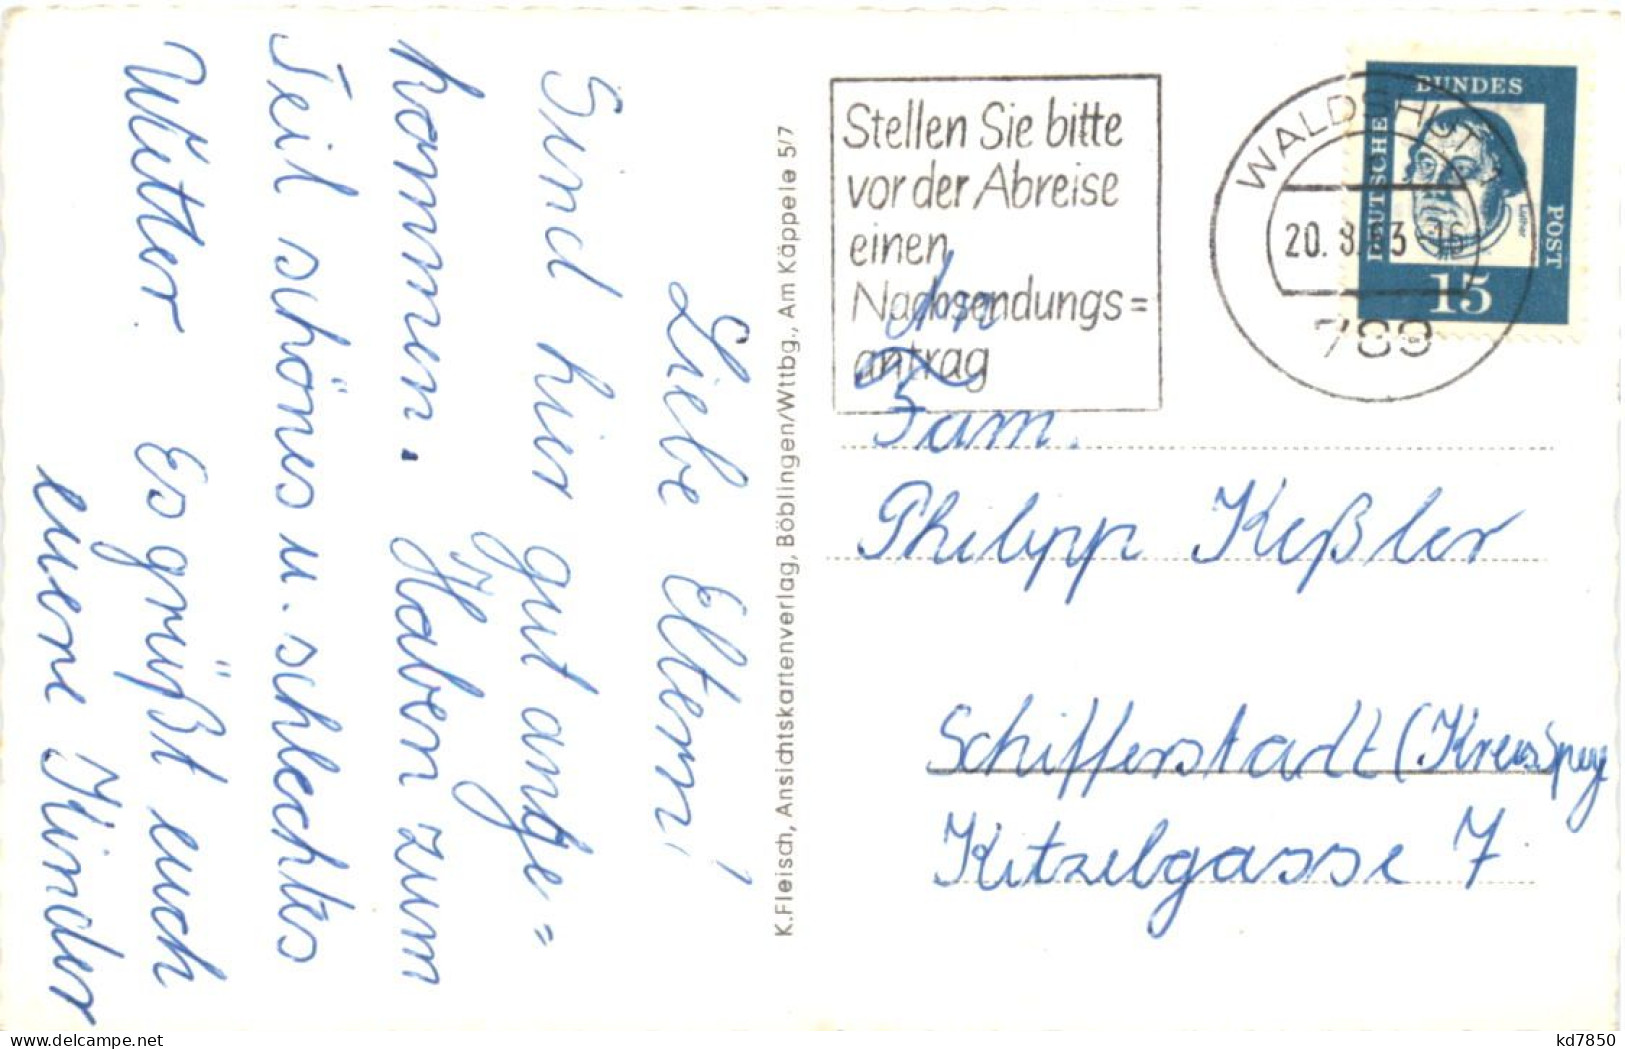 Liebe Eltern!
Sind hier gut ange=
kommen. Haben zum
Teil schönes u. schlechtes
Wetter. Es grüßt euch
eure Kinder
K.Fleisch, Ansichtskartenverlag, Böblingen/Wttbg., Am Käppele 5/7
Stellen Sie bitte
vor der Abreise
einen
Nachsendungs=
antrag
WALDSHUT
20. 8. 63 -16
789
DEUTSCHE
BUNDES
POST
Luther
15
An
Fam.
Philipp Keßler
Schifferstadt (Kreis Spey
Kitzelgasse 7
kd7850